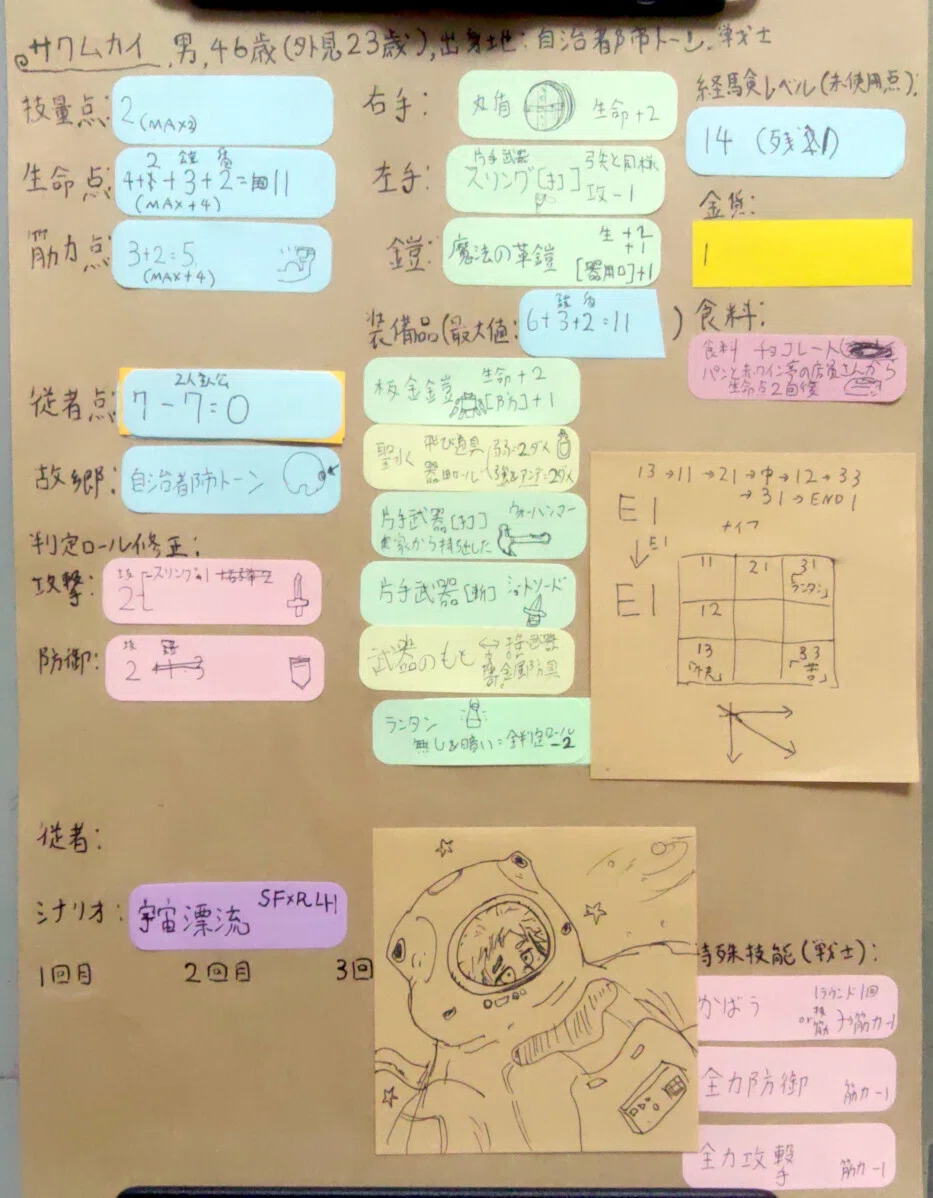 サクムカイ, 男, 46歳(外見23歳), 出身地: 自治都市トーン, 戦士
技量点:
2 (MAX2)
生命点:
+3+2=11
(MAX+4)
筋力点:
3+2=5
(MAX+4)
従者点:
7-7=0
故郷:
自治都市トーン
判定ロール修正:
攻撃:
防御:
2
従者:
シナリオ:
宇宙漂流
SF×RLH
1回目
2回目
3回
右手:
丸盾
生命+2
左手:
片手武器
弓矢と同様
スリング[打]
攻-1
鎧:
魔法の革鎧
生+2
+1
[器用ロ]+1
装備品(最大値:
6+3+2=11
)
板金鎧
生命+2
[防]+1
聖水
飛び道具
片手武器[打]
ウォーハンマー
家から持出した
片手武器[斬]
ショートソード
武器のもと
金属防具
ランタン
無しを暗い:全判定ロール-2
経験レベル(未使用点):
14
金貨:
1
食料:
食料 チョコレート
パンと赤ワイン亭の店員さんから
生命点2回復
13→11→21→中→12→33
→31→END1
E1
E1
E1
ナイフ
11
21
31
「ランタン」
12
13
33
特殊技能(戦士):
かばう
1ラウンド1回
筋力-1
全力防御
筋力-1
全力攻撃
筋力-1